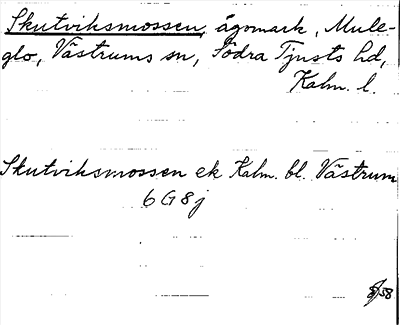 Skutviksmossen, ägomark, Mule-
glo, Västrums sn, Södra Tjusts hd,
Kalm. l.
Skutviksmossen ek Kalm. bl. Västrum
6G8j